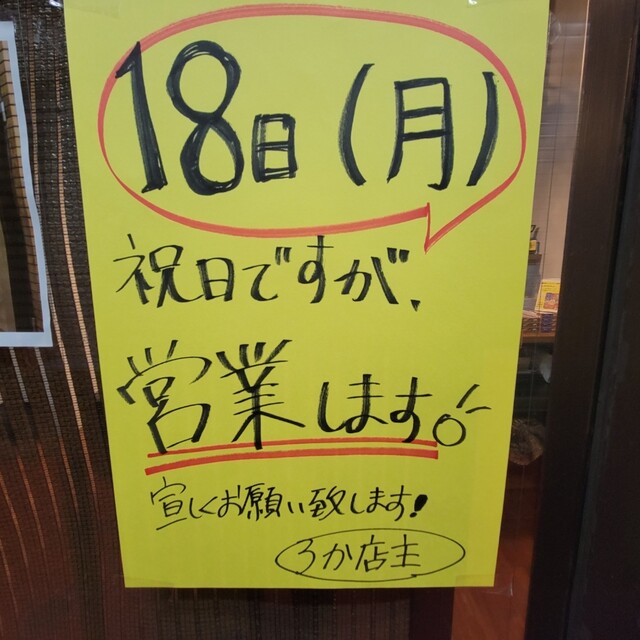 18日(月)
祝日ですが、
営業します。
宜しくお願い致します!
ろか店主